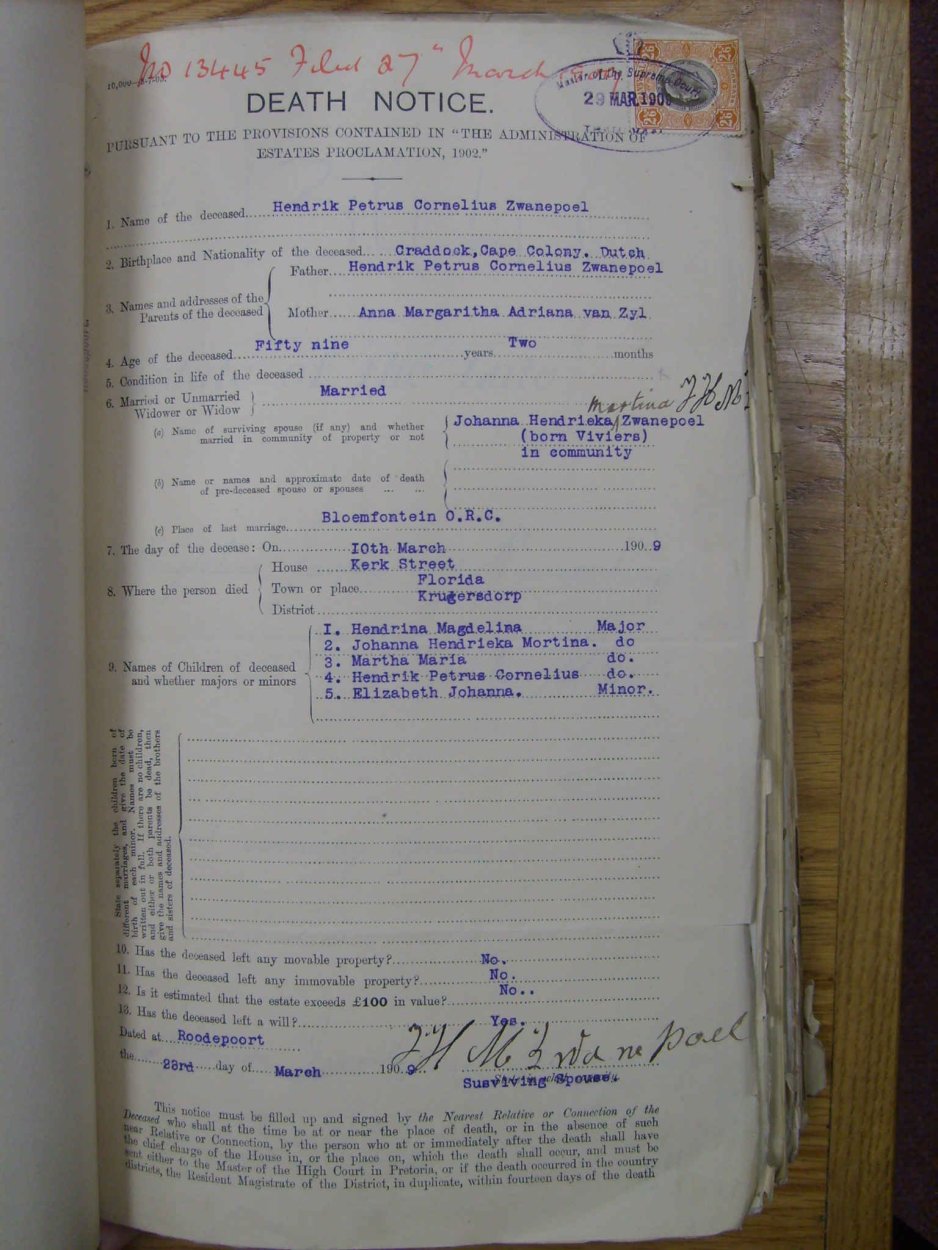 No 13445 Filed 27" March
Master of the Supreme Court
29 MAR.1909
2/6 2/6
2/6 2/6
DEATH NOTICE.
PURSUANT TO THE PROVISIONS CONTAINED IN "THE ADMINISTRATION OF
ESTATES PROCLAMATION, 1902."
1. Name of the deceased Hendrik Petrus Cornelius Zwanepoel
2. Birthplace and Nationality of the deceased Craddock, Cape Colony. Dutch
3. Names and addresses of the Parents of the deceased
Father Hendrik Petrus Cornelius Zwanepoel
Mother Anna Margaritha Adriana van Zyl
4. Age of the deceased Fifty nine years Two months
5. Condition in life of the deceased
6. Married or Unmarried Married
Widower or Widow
martina J H M Z
(a) Name of surviving spouse (if any) and whether Johanna Hendrieka/Zwanepoel
married in community of property or not (born Viviers)
in community
(b) Name or names and approximate date of death
of pre-deceased spouse or spouses ... ...
(c) Place of last marriage Bloemfontein O.R.C.
7. The day of the decease: On 10th March 190 9
8. Where the person died
House Kerk Street
Town or place Florida
Krugersdorp
District
9. Names of Children of deceased
and whether majors or minors
I. Hendrina Magdelina Major
2. Johanna Hendrieka Mortina. do
3. Martha Maria do.
4. Hendrik Petrus Cornelius do.
5. Elizabeth Johanna. Minor.
State separately the children born of
different marriages, and give the date of
birth of each minor. Names must be
written out in full. If there are no children,
and either or both parents be dead, then
give the names and addresses of the brothers
and sisters of deceased.
10. Has the deceased left any movable property? No.
11. Has the deceased left any immovable property? No.
12. Is it estimated that the estate exceeds £100 in value? No..
13. Has the deceased left a will? Yes.
Dated at Roodepoort
J H M Zwanepoel
the 23rd day of March 190 9.
Susviving Spouse.
This notice must be filled up and signed by the Nearest Relative or Connection of the
Deceased who shall at the time be at or near the place of death, or in the absence of such
near Relative or Connection, by the person who at or immediately after the death shall have
the chief charge of the House in, or the place on, which the death shall occur, and must be
sent either to the Master of the High Court in Pretoria, or if the death occurred in the country
districts, the Resident Magistrate of the District, in duplicate, within fourteen days of the death